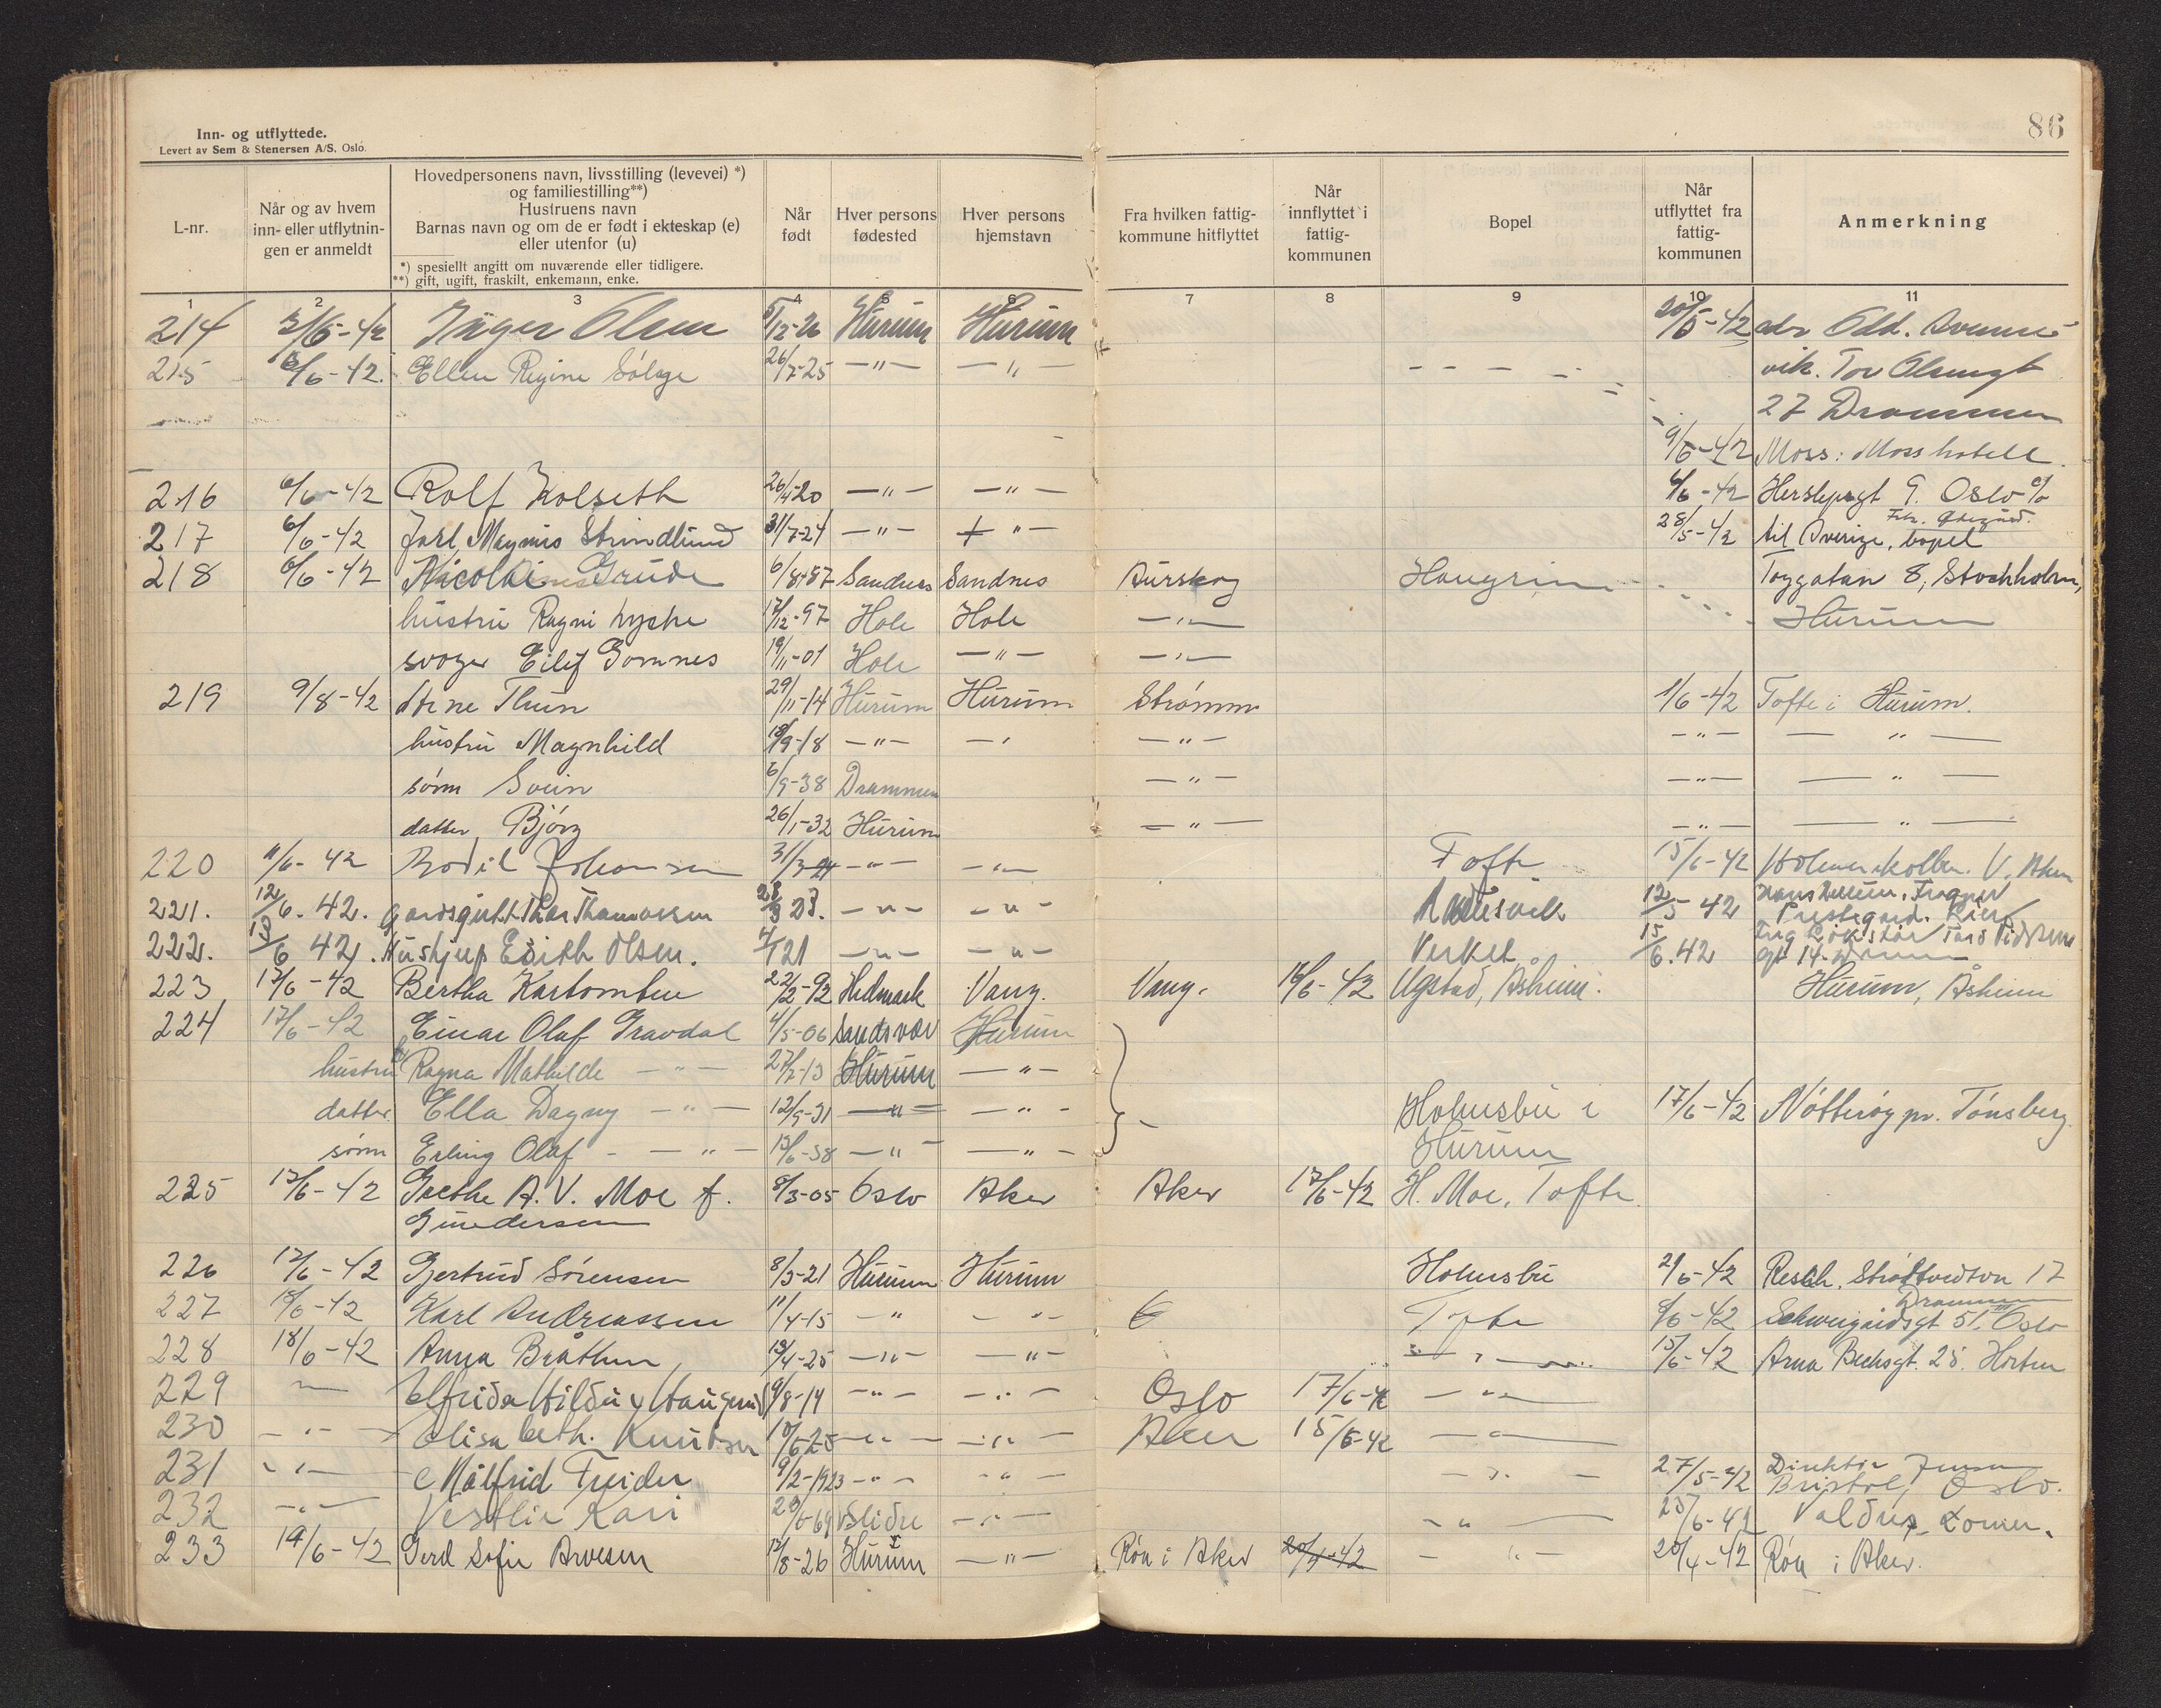 86
Inn- og utflyttede.
Levert av Sem & Stenersen A/S, Oslo.
L-nr.
Når og av hvem
inn- eller utflytnin-
gen er anmeldt
Hovedpersonens navn, livsstilling (levevei) *)
og familiestilling**)
Hustruens navn
Barnas navn og om de er født i ekteskap (e)
eller utenfor (u)
*) spesiellt angitt om nuværende eller tidligere.
**) gift, ugift, fraskilt, enkemann, enke.
Når
født
Hver persons
fødested
Hver persons
hjemstavn
Fra hvilken fattig-
kommune hitflyttet
Når
innflyttet i
fattig-
kommunen
Bopel
Når
utflyttet fra
fattig-
kommunen
Anmerkning
1 2 3 4 5 6 7 8 9 10 11
214 3/6-42 Inger Olsen 5/12-26 Hurum Hurum 20/5-42 adr Odd.
215 6/6-42. Ellen Regine 26/7-25 -"- -"- vik. Tor Olsensgt
27 Drammen
9/6-42 Moss: Moss hotell.
216 6/6-42 Rolf Kolseth 26/4-20 -"- -"- 6/6-42 9. Oslo c/o
217 6/6-42 Jarl Magnus Strindlund 31/7-24 -"- -"- 28/5-42 til Sverige, bopel
218 6/6-42 Nicolai Grude 6/8-87 Sandnes Sandnes Aurskog Toggatan 8, Stockholm,
hustru Ragni 17/12-97 Hole Hole -"- Hurum
svoger Eilif Gomnes 19/11-01 Hole -"- -"-
219 9/8-42 Stene Thun 29/11-14 Hurum Hurum Strømm 1/6-42 Tofte i Hurum.
hustru Magnhild 18/9-18 -"- -"- -"- -"- -"-
sønn Svein 6/9-38 Drammen -"- -"- -"-
datter Bjørg 26/1-32 Hurum -"- -"- -"-
220 11/6-42 Bodil Johansen 31/3-24 -"- -"- Tofte 15/6-42 V. Aker
221. 12/6.42. gardsgutt Thor 28/3 23. -"- -"- 12/5 42
222. 13/6 42. Hushjelp Edith Olsen. 4/1 21 -"- -"- Verket 15/6.42 gt 14.
223 17/6-42 Bertha 22/2-92 Hedmark Vang. Vang. 16/6-42 Ugstad, Åsheim. Hurum, Åsheim
224 17/6-42 Einar Olaf Gravdal 4/5-06 Sandsvær Hurum
hustru Ragna Mathilde -"- 27/7-13 Hurum -"-
datter Ella Dagny -"- 12/9-31 -"- -"- Holmsbu i 17/6-42 Nøtterøy pr. Tønsberg
sønn Erling Olaf -"- 13/6-38 -"- -"- Hurum
225 17/6-42 Grethe A. V. Moe f. 8/3-05 Oslo Aker Aker 17/6-42 H. Moe, Tofte.
Gundersen
226 17/6-42 Gjertrud Sørensen 8/3-21 Hurum Hurum Holmsbu 21/5-42 Strøtvedtvn 17
Drammen
227 18/6-42 Karl Andreassen 11/4-15 -"- -"- Tofte 8/6-42 Schweigaardsgt 51III Oslo
228 18/6-42 Anna Bråthen 13/4-25 -"- -"- -"- 15/6-42 Arna Bechsgt. 28. Horten
229 -"- Elfrida 9/8-14 -"- -"- Oslo 17/6-42 -"-
230 -"- Elisabeth. Knutsen 10/6-25 -"- -"- Aker 15/6-42 -"-
231 -"- Målfrid 9/2-1923 -"- -"- -"- 27/5-42 Direktør Jensen
Bristol, Oslo.
232 -"- Vestlie Kari 20/6-69 V Slidre -"- -"- 23/6-42 Valdres
233 19/6-42 Gerd Sofie Arvesen 15/8-26 Hurum -"- Røa i Aker 20/4-42 -"- 20/4-42 Røa i Aker.